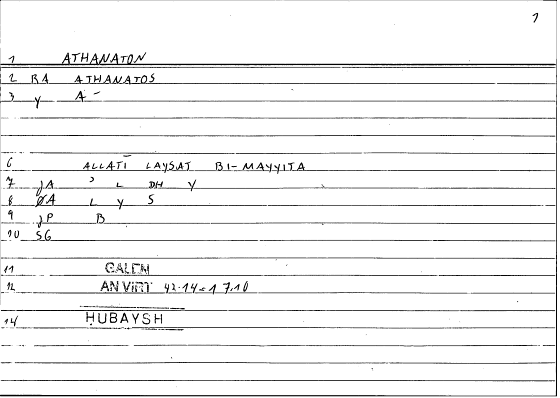 1
1 ATHANATON
2 RA ATHANATOS
3 y A-
6 ALLATĪ LAYSAT BI-MAYYITA
7 jA ʾ L DH Y
8 ØA L y S
9 jP B
10 SG
11 GALEN
12 AN VIRT 42.14=1 7.10
14 ḤUBAYSH